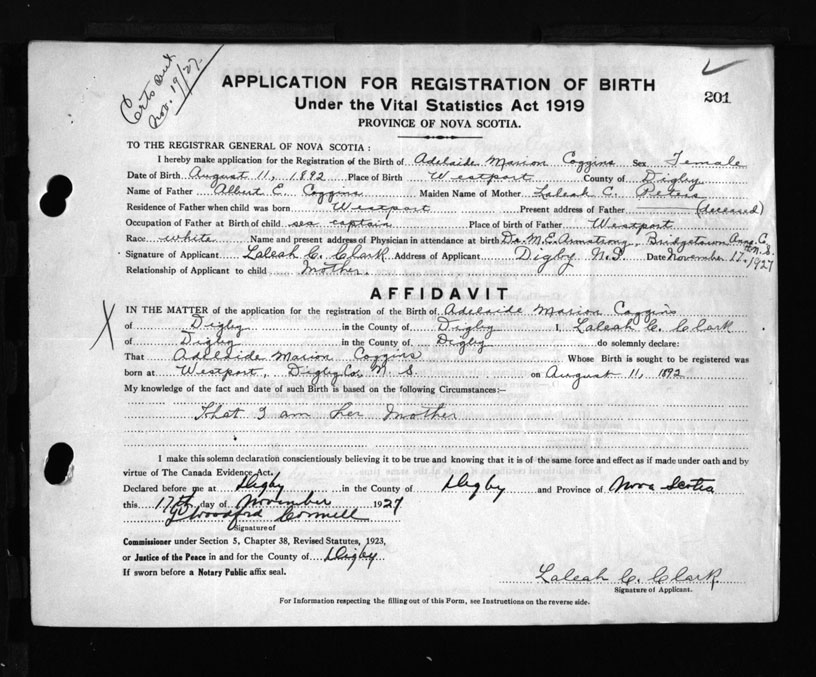 Certs Out
Nov. 19/27.
APPLICATION FOR REGISTRATION OF BIRTH
201
Under the Vital Statistics Act 1919
PROVINCE OF NOVA SCOTIA.
TO THE REGISTRAR GENERAL OF NOVA SCOTIA :
I hereby make application for the Registration of the Birth of Adelaide Marion Coggins Sex Female
Date of Birth August 11, 1892 Place of Birth Westport County of Digby
Name of Father Albert E. Coggins Maiden Name of Mother Laleah C. Peters
Residence of Father when child was born Westport Present address of Father (deceased)
Occupation of Father at Birth of child sea captain Place of birth of Father Westport
Race white Name and present address of Physician in attendance at birth Dr. M.E. Armstrong, Bridgetown Anna. Co. N.S.
Signature of Applicant Laleah C. Clark Address of Applicant Digby N.S. Date November 17. 1927
Relationship of Applicant to child Mother.
AFFIDAVIT
IN THE MATTER of the application for the registration of the Birth of Adelaide Marion Coggins
of Digby in the County of Digby I, Laleah C. Clark
of Digby in the County of Digby do solemnly declare:
That Adelaide Marion Coggins Whose Birth is sought to be registered was
born at Westport, Digby Co. N. S. on August 11, 1892
My knowledge of the fact and date of such Birth is based on the following Circumstances:—
That I am her mother
I make this solemn declaration conscientiously believing it to be true and knowing that it is of the same force and effect as if made under oath and by
virtue of The Canada Evidence Act.
Declared before me at Digby in the County of Digby and Province of Nova Scotia
this 17th day of November 1927
Woodford
Signature of
Commissioner under Section 5, Chapter 38, Revised Statutes, 1923,
or Justice of the Peace in and for the County of Digby
If sworn before a Notary Public affix seal.
Laleah C. Clark
Signature of Applicant.
For Information respecting the filling out of this Form, see Instructions on the reverse side.